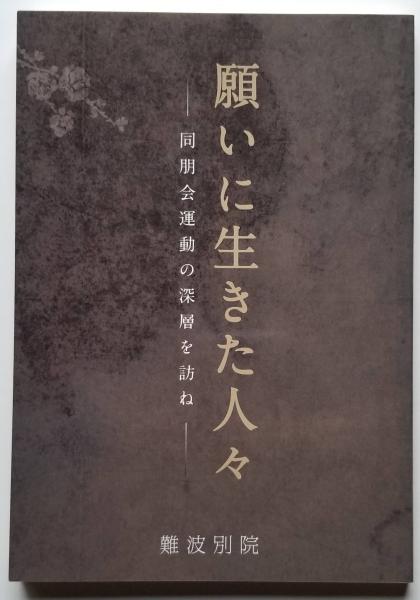 願いに生きた人々
同朋会運動の深層を訪ね
難波別院